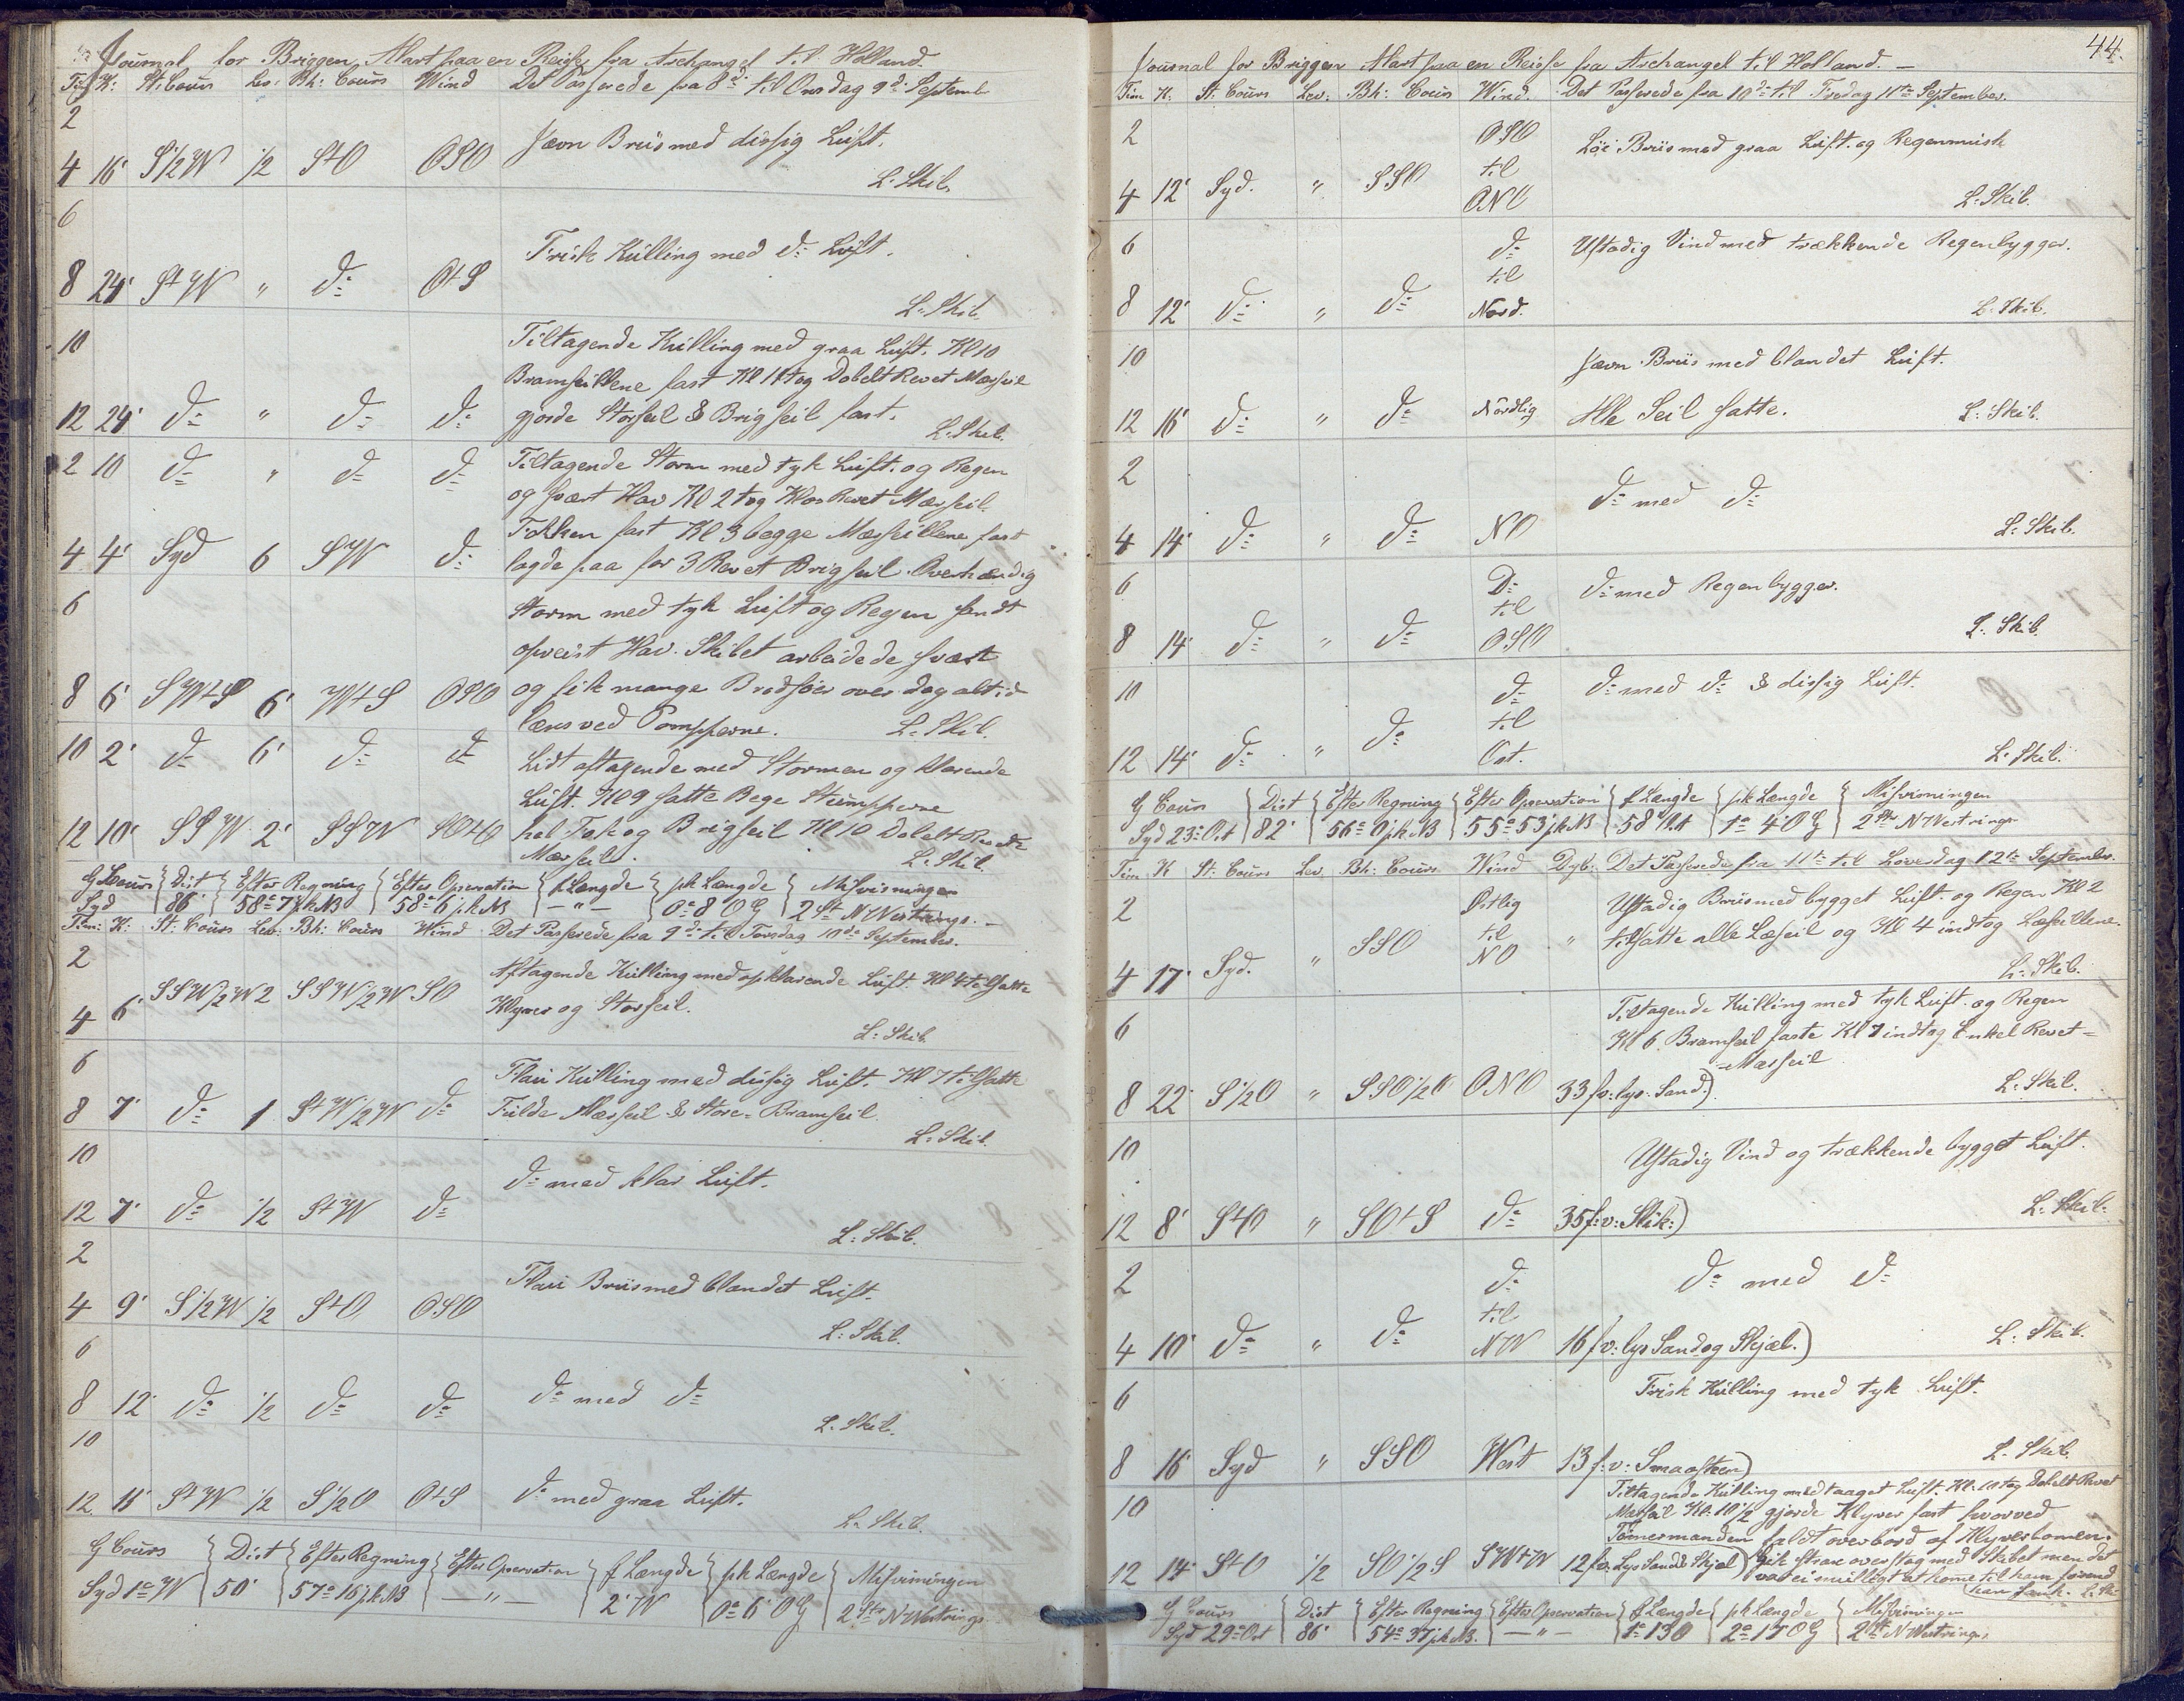 Journal for Briggen Mart paa en Reise fra Archangel til Holland.
Tim K: St: Cours Lev: Bh: Cours Wind Det Passerede fra 8de til Onsdag 9de Septemb
2
Jævn Briis med dissig Luft.
4 16' S 1/2 W 1/2 StO OSO
L: Skib.
6
Frisk Kulling med do Luft.
8 24' StW " do OtS
L: Skib
10 Tiltagende Kulling med graa Luft. Kl 10
Bramseillene fast Kl 11 tog Dobelt Revet Mærseil
12 24' do " do do gjorde Storseil & Brigseil fast. L: Skib.
2 10 do " do do Tiltagende Storm med tyk Luft. og Regen
og svært Hav Kl 2 tog Klos Revet Mærseil.
Fokken fast Kl 3 begge Mærseillene fast
4 4' Syd 6 SW do lagde paa for 3 Revet Brigseil. Overhændig
6 Storm med tyk Luft og Regen sendt
opreist Hav. Skibet arbeidede svært
8 6' SWtS 6' WtS OSO og fik mange Bradsøer over dog altid
læns ved Pompperne. L: Skib.
10 2' do 6' do do Lidt aftagende med Stormen og klarende
Luft. Kl 9 satte Bege Stumpperne
12 10' SSW 2' SSW SOtO hel Fok og Brigseil Kl 10 Dobelt Revede
Mærseil. L: Skib.
G Cours Dist Efter Regning Efter Opservation f Længde pk Længde Misvisningen
Syd 86' 58° 7' pk NB 58° 6' pk NB — " — 0° 8' OG 2 St NWestrings. —
Tim: K: St: Cours Lev: Bh: Cours Wind Det Passerede fra 9de til Torsdag 10de September.
2
Aftagende Kulling med opklarende Luft. Kl 4 tilsatte
4 6' SSW 1/2 W 2 SSW 1/2 W SO Klyver og Storseil.
L: Skib.
6
Flau Kulling med dissig Luft. Kl 7 tilsatte
8 7' do 1 StW 1/2 W do Fulde Mærseil & Store-Bramseil.
L: Skib.
10
do med klar Luft.
12 7' do 1/2 StW do
L: Skib.
2
Flau Briis med blandet Luft.
4 9' S 1/2 W 1/2 StO OSO
L: Skib.
6
8 12' do 1/2 do do do med do
L: Skib.
10
12 11' StW 1/2 S 1/2 O OtS do med graa Luft.
L: Skib.
G Cours Dist Efter Regning Efter Opservation f Længde pk Længde Misvisningen
Syd 1° W 50' 57° 16' pk NB — " — 2' W 0° 6' OG 2 Str NWestrings
44.
Journal for Briggen Mart paa en Reise fra Archangel til Holland. —
Tim K: St: Cours Lev: Bh: Cours Wind. Det Passerede fra 10de til Fredag 11te September.
2 OSO Løi Briis med graa Luft. og Regenmusk
4 12' Syd. " SSO til
ONO L: Skib.
6 do Ustadig Vind med trækkende Regenbygger.
til
8 12' do " do Nord. L: Skib.
10 Jævn Briis med blandet Luft.
12 16' do " do Nordlig Alle Seil satte. L: Skib.
2
do med do
4 14' do " do NO L: Skib.
6 Do do med Regenbygger.
til
8 14' do " do OSO L: Skib.
10 do do med do & dissig Luft.
til
12 14' do " do Ost. L: Skib.
G Cours Dist Efter Regning Efter Opservation f Længde pk Længde Misvisningen
Syd 23° Ost 82' 56° 0' pk NB 55° 53' pk NB 58' Ost 1° 4' OG 2 Str NWestrings
Tim K St: Cours Lev. Bh: Cours Wind Dyb: Det Passerede fra 11te til Løverdag 12te September.
2 Østlig Ustadig Briis med bygget Luft. og Regen Kl 2
til " tilsatte alle Læseil og Kl 4 indtog Læseillene.
4 17' Syd. " SSO NO L: Skib.
Tiltagende Kulling med tyk Luft. og Regen
6 Kl 6. Bramseil faste Kl 7 indtog Enkel Revet-
-Mærseil
8 22' S 1/2 O " SSO 1/2 O ONO 33 fv: lys: Sand:) L: Skib.
10 Ustadig Vind og trækkende bygget Luft.
12 8' StO " SOtS do 35 f: v: Slik:) L: Skib:
2 do do med do
til
4 10' do " do NW 16 fv: lys Sand og Skjæl.) L: Skib.
6 Frisk Kulling med tyk Luft.
8 16' Syd " SSO West 13 f: v: Smaasten) L: Skib.
10 Tiltagende Kulling med taaget Luft. Kl: 10 tog Dobelt Revet
Mærseil Kl: 10 1/2 gjorde Klyver fast hvorved
Tømermanden faldt overbord af Klyverbomen.
12 14' StO 1/2 SO 1/2 S SWtW 12 fv. Lys Sand & Skjæl) Gik strax overstag med Skibet men det
var ei muligt at kome til ham forend
han sank. L: Ski
G Cours Dist Efter Regning Efter Opservation f Længde pk Længde Misvisningen
Syd 29° Ost 86' 54° 37' pk NB. — " — 1° 13' O 2° 17' OG 2 Str NWestrings.